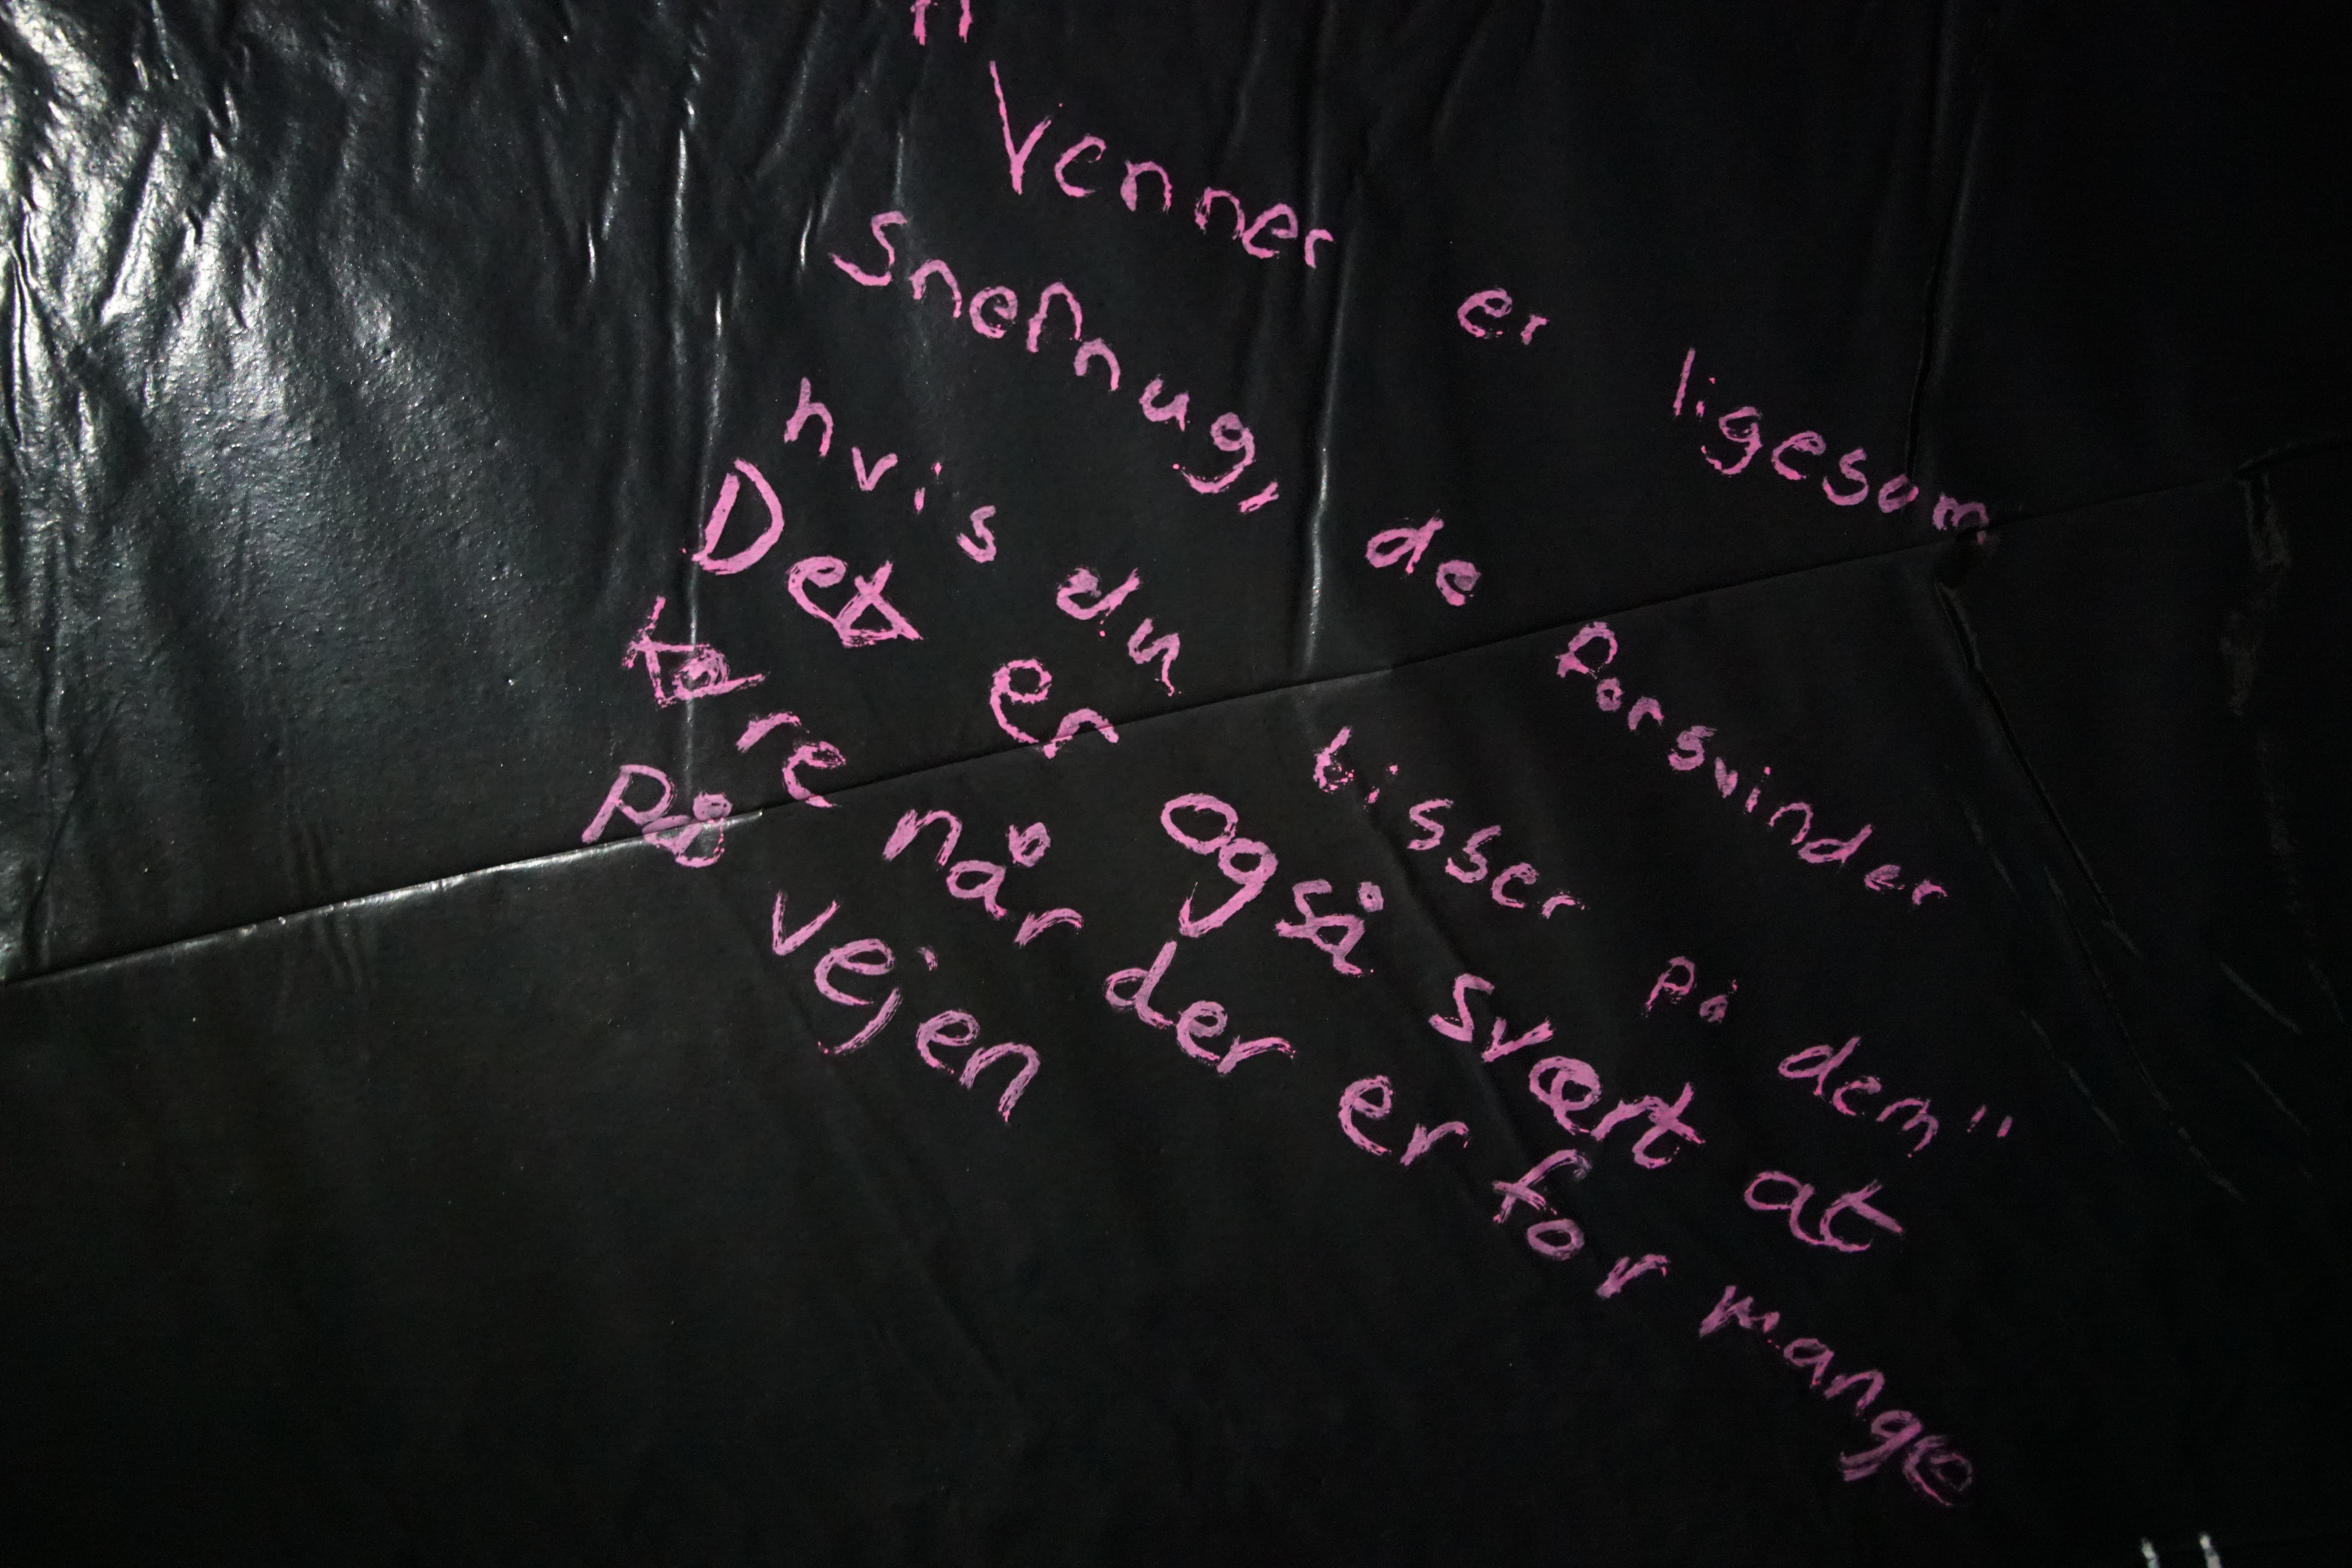 "
Venner er ligesom
Snefnug, de forsvinder
hvis du tisser på dem"
Det er også svært at
køre når der er for mange
på vejen